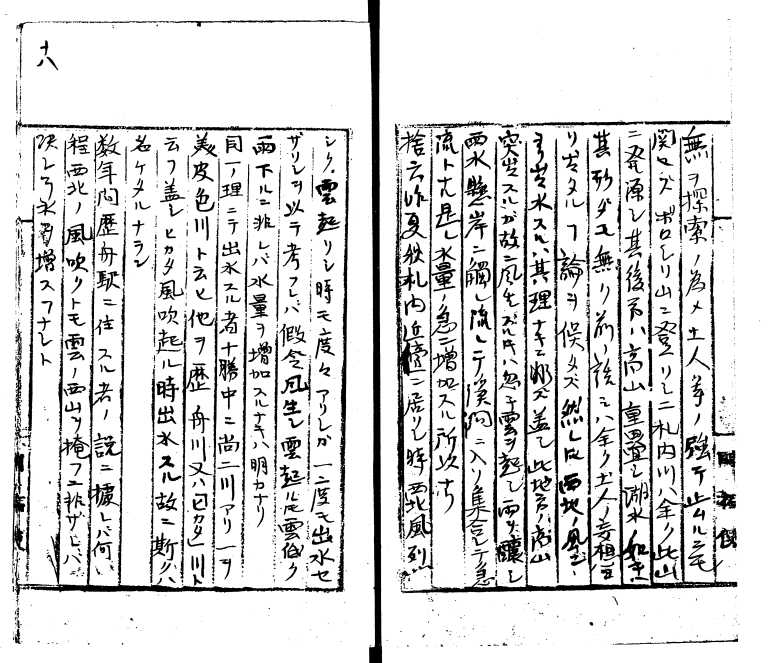 無ヲ探索ノ為メ土人等ノ強テ止ムルニモ
関セズボロシリ山ニ登リシニ札内川ハ全ク此山
ニ発源シ其後方ハ高山重畳シ湖水ノ如キハ
其形ダモ無ク前ノ談ハ全ク土人ノ妄想
リタルコ論ヲ俟タズ然レ西北ノ風
出水スルハ其理ナキニ非ズ蓋シ此地方ハ高山
突出スルガ故ニ風生ズルキハ忽チ雲ヲ起シ雨ヲ醸シ
雨水懸岸ニ触レ流レテ渓間ニ入リ集合シテ急
流トナル是レ水量ノ急ニ増加スル所以ナリ
捨云昨夏秋札内近傍ニ居リシ時西北風烈
シク雲起リシ時モ度々アリシガ一二度モ出水セ
ザリシヲ以テ考フレバ仮令風生シ雲起ルモ雲低ク
雨下ルニ非レバ水量ヲ増加スルナキハ明カナリ
同一ノ理ニテ出水スル者十勝中ニ尚二川アリ一ヲ
美皮色川ト云ヒ他ヲ歴舟川又ハ「ヒカタ」川ト
云フ蓋シヒカタ風吹起ル時出水スル故ニ斯クハ
名ケタルナラン
数年間歴舟駅ニ住スル者ノ説ニ據レバ何
程西北ノ風吹クトモ雲ノ西山ヲ掩フニ非ザレバ
決シテ水増スコナシト
十八